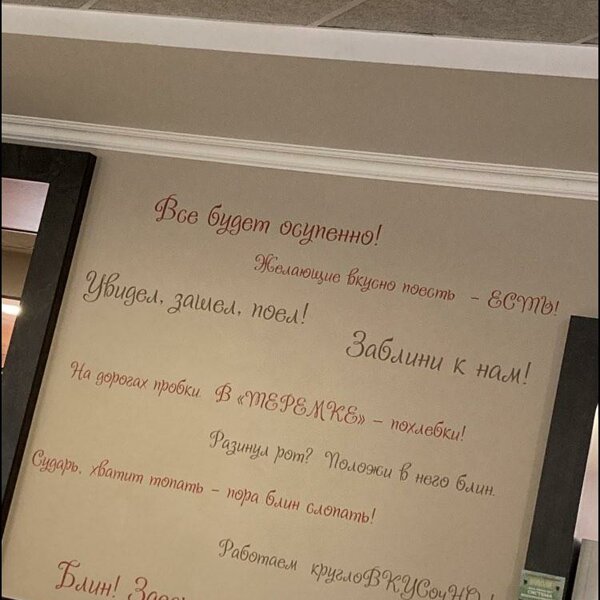 Все будет осупенно!
Желающие вкусно поесть - ЕСТЬ!
Увидел, зашел, поел!
Заблини к нам!
На дорогах пробки. В «ТЕРЕМКЕ» - похлебки!
Разинул рот? Положи в него блин.
Сударь, хватит топать - пора блин слопать!
Работаем круглоВКУСочНО!
Блин!